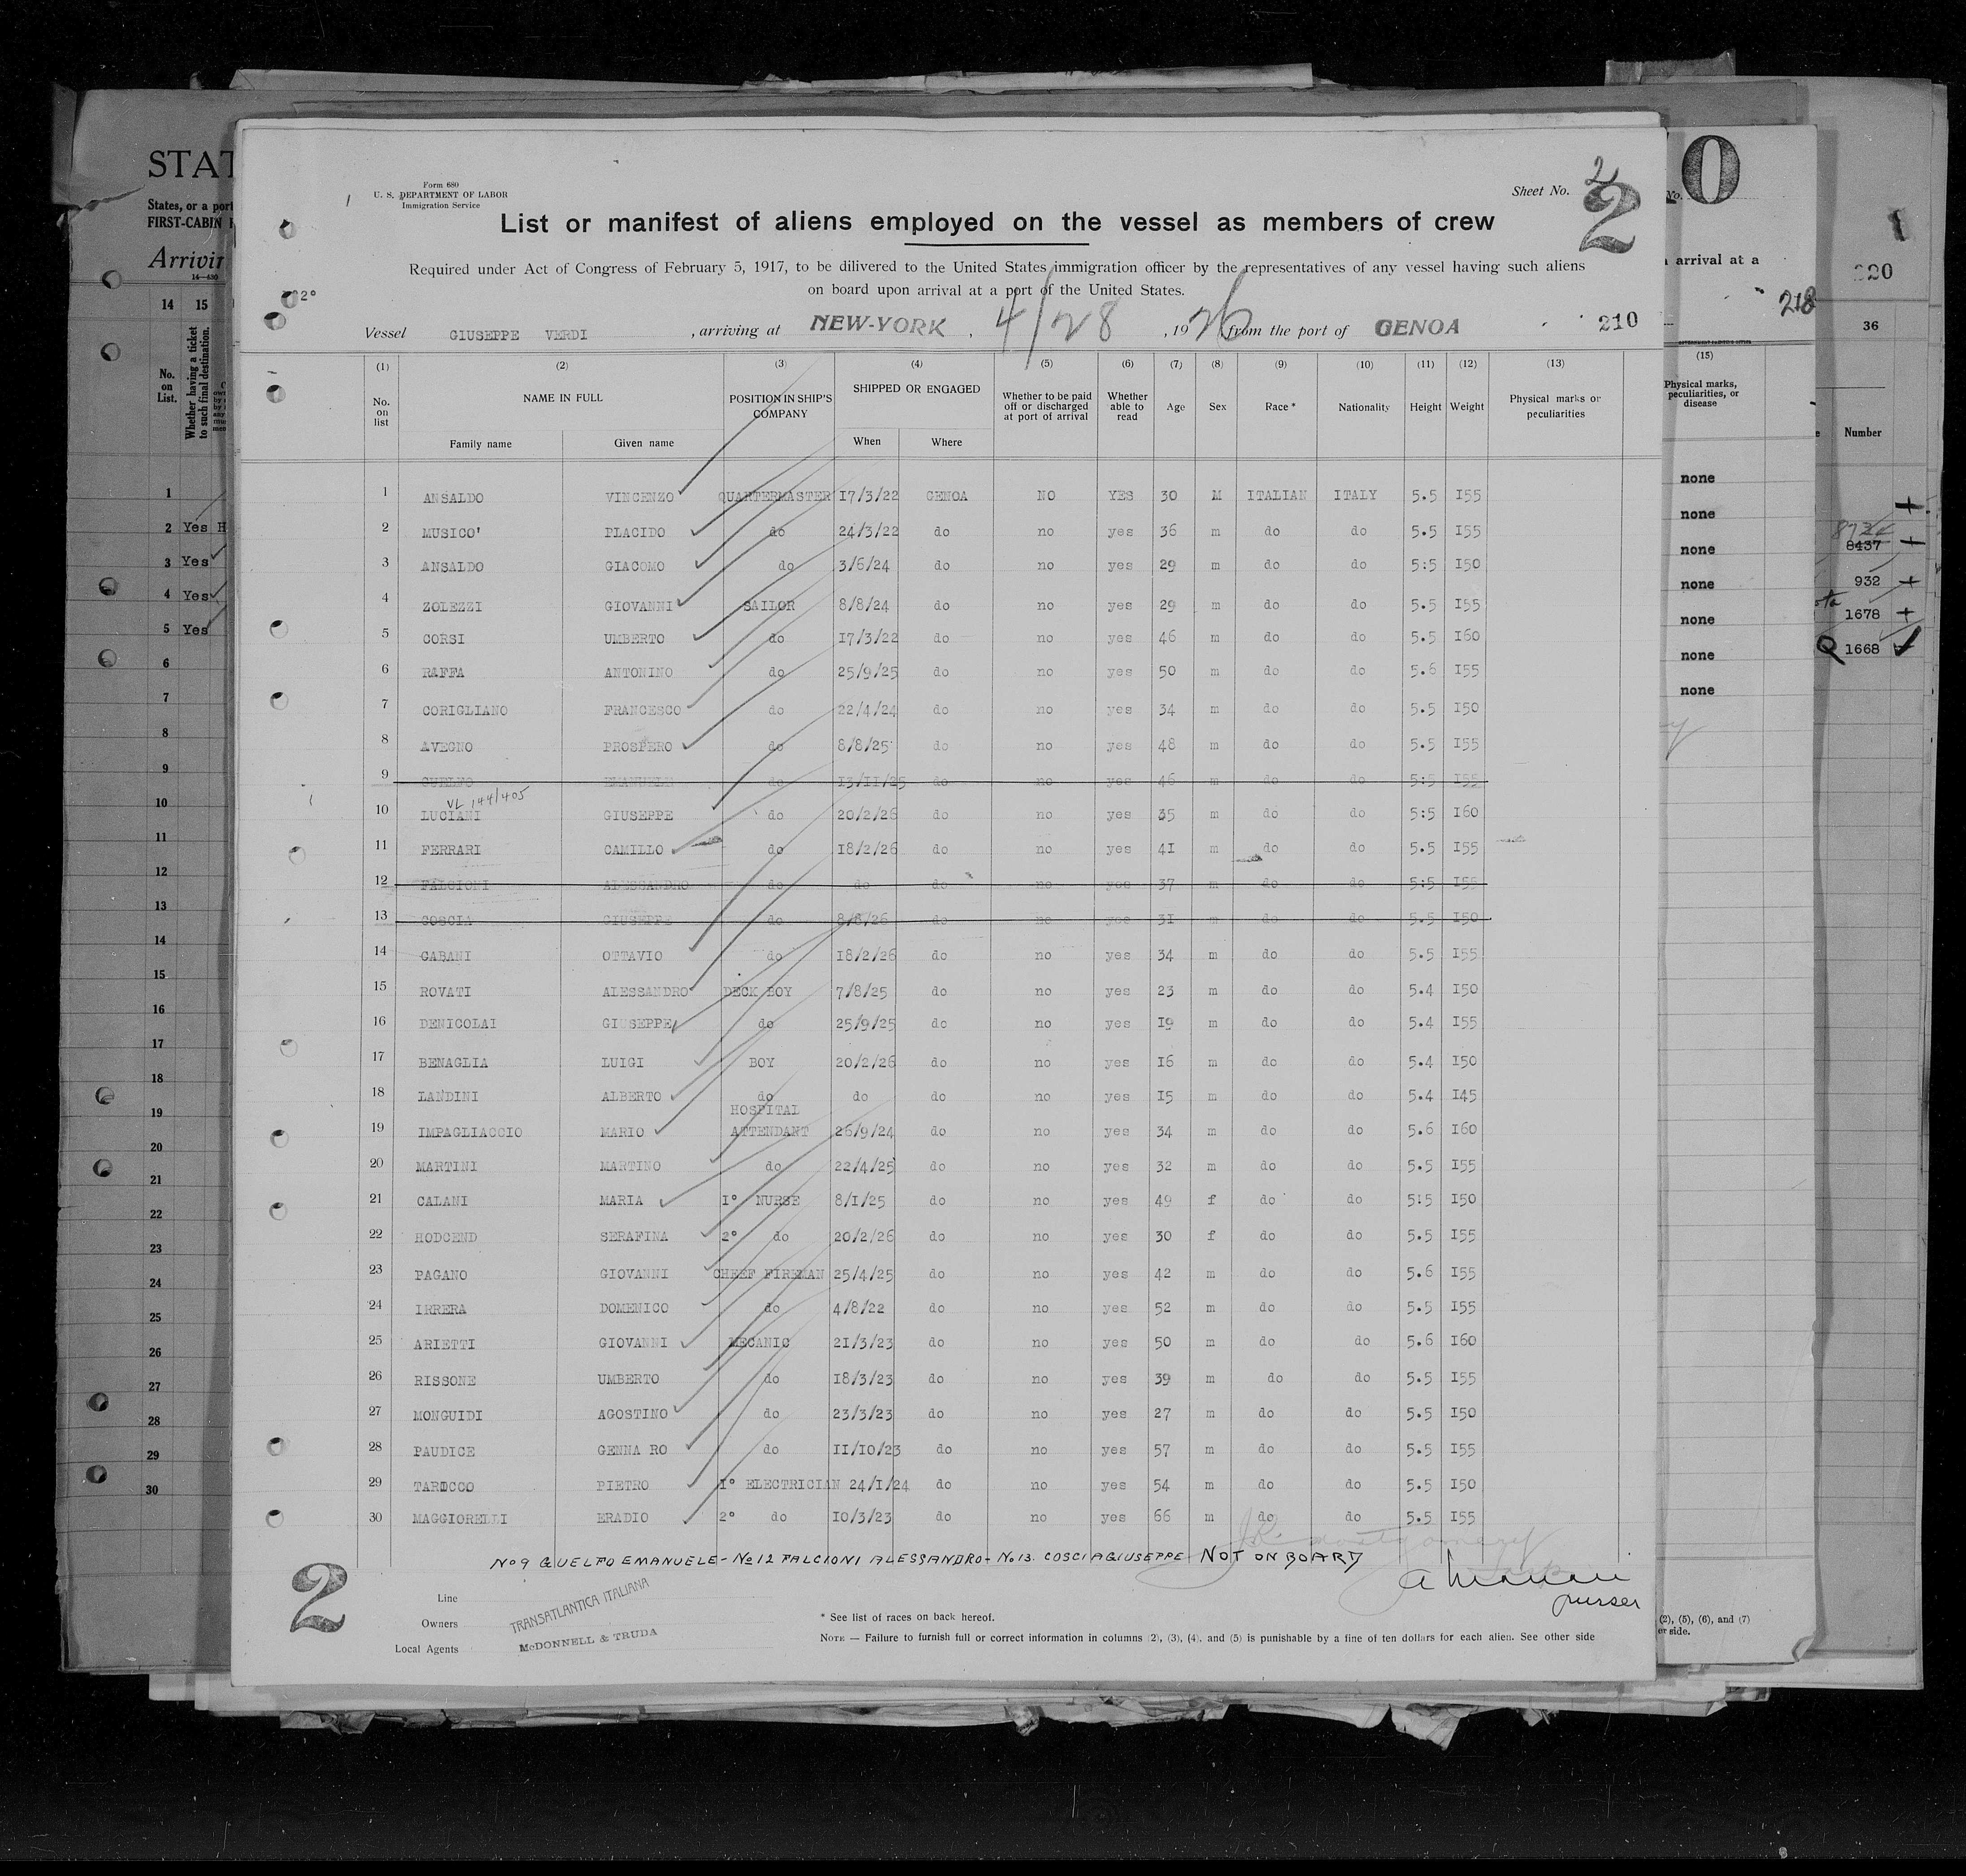 Form 680
U. S. DEPARTMENT OF LABOR
Immigration Service
Sheet No. 2
2
List or manifest of aliens employed on the vessel as members of crew
Required under Act of Congress of February 5, 1917, to be dilivered to the United States immigration officer by the representatives of any vessel having such aliens
on board upon arrival at a port of the United States.
Vessel GIUSEPPE VERDI , arriving at NEW-YORK , 4/28 , 1926 from the port of GENOA 210
(1) (2) (3) (4) (5) (6) (7) (8) (9) (10) (11) (12) (13)
No. on list NAME IN FULL POSITION IN SHIP'S COMPANY SHIPPED OR ENGAGED Whether to be paid off or discharged at port of arrival Whether able to read Age Sex Race * Nationality Height Weight Physical marks or peculiarities
Family name Given name When Where
1 ANSALDO VINCENZO QUARTERMASTER I7/3/22 GENOA NO YES 30 M ITALIAN ITALY 5.5 I55
2 MUSICO' PLACIDO do 24/3/22 do no yes 36 m do do 5.5 I55
3 ANSALDO GIACOMO do 3/6/24 do no yes 29 m do do 5:5 I50
4 ZOLEZZI GIOVANNI SAILOR 8/8/24 do no yes 29 m do do 5.5 I55
5 CORSI UMBERTO do I7/3/22 do no yes 46 m do do 5.5 I60
6 RAFFA ANTONINO do 25/9/25 do no yes 50 m do do 5.6 I55
7 CORIGLIANO FRANCESCO do 22/4/24 do no yes 34 m do do 5.5 I50
8 AVEGNO PROSPERO do 8/8/25 do no yes 48 m do do 5.5 I55
9 GUELFO EMANUELE do I3/II/25 do no yes 46 m do do 5:5 I55
VL 144/405
10 LUCIANI GIUSEPPE do 20/2/26 do no yes 35 m do do 5:5 I60
11 FERRARI CAMILLO do I8/2/26 do no yes 4I m do do 5.5 I55
12 FALCIONI ALESSANDRO do do do no yes 37 m do do 5:5 I55
13 COSCIA GIUSEPPE do 8/8/26 do no yes 3I m do do 5.5 I50
14 GABANI OTTAVIO do I8/2/26 do no yes 34 m do do 5.5 I55
15 ROVATI ALESSANDRO DECK BOY 7/8/25 do no yes 23 m do do 5.4 I50
16 DENICOLAI GIUSEPPE do 25/9/25 do no yes I9 m do do 5.4 I55
17 BENAGLIA LUIGI BOY 20/2/26 do no yes I6 m do do 5.4 I50
18 LANDINI ALBERTO do do do no yes I5 m do do 5.4 I45
HOSPITAL
19 IMPAGLIACCIO MARIO ATTENDANT 26/9/24 do no yes 34 m do do 5.6 I60
20 MARTINI MARTINO do 22/4/25 do no yes 32 m do do 5.5 I55
21 CALANI MARIA I° NURSE 8/I/25 do no yes 49 f do do 5:5 I50
22 HODCEND SERAFINA 2° do 20/2/26 do no yes 30 f do do 5.5 I55
23 PAGANO GIOVANNI CHEEF FIREMAN 25/4/25 do no yes 42 m do do 5.6 I55
24 IRRERA DOMENICO do 4/8/22 do no yes 52 m do do 5.5 I55
25 ARIETTI GIOVANNI MECANIC 2I/3/23 do no yes 50 m do do 5.6 I60
26 RISSONE UMBERTO do I8/3/23 do no yes 39 m do do 5.5 I55
27 MONGUIDI AGOSTINO do 23/3/23 do no yes 27 m do do 5.5 I50
28 PAUDICE GENNA RO do II/I0/23 do no yes 57 m do do 5.5 I55
29 TAROCCO PIETRO I° ELECTRICIAN 24/I/24 do no yes 54 m do do 5.5 I50
30 MAGGIORELLI ERADIO 2° do I0/3/23 do no yes 66 m do do 5.5 I55
No9 GUELFO EMANUELE - No12 FALCIONI ALESSANDRO - No13. COSCIA GIUSEPPE NOT ON BOARD
purser
2
Line
Owners TRANSATLANTICA ITALIANA
Local Agents McDONNELL & TRUDA
* See list of races on back hereof.
NOTE — Failure to furnish full or correct information in columns (2), (3), (4), and (5) is punishable by a fine of ten dollars for each alien. See other side
STAT
States, or a port
FIRST-CABIN
Arrivin
14 15
No. on List.
Whether having a ticket to such final destination.
1
2 Yes H
3 Yes
4 Yes
5 Yes
6
7
8
9
10
11
12
13
14
15
16
17
18
19
20
21
22
23
24
25
26
27
28
29
30
No. 0
arrival at a
218
(15)
Physical marks, peculiarities, or disease
none
none
none
none
none
none
none
(2), (5), (6), and (7)
er side.
220
36
Number
8437
932
1678
1668